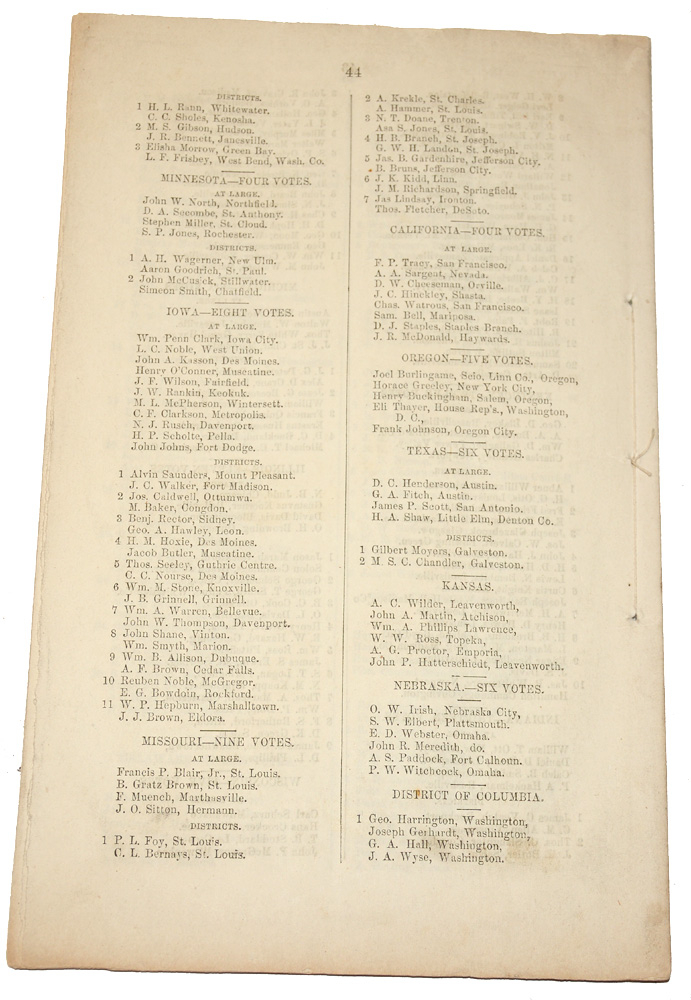 44
DISTRICTS.
1 H. L. Rann, Whitewater.
C. C. Sholes, Kenosha.
2 M. S. Gibson, Hudson.
J. R. Bennett, Janesville.
3 Elisha Morrow, Green Bay.
L. F. Frisbey, West Bend, Wash. Co.
MINNESOTA—FOUR VOTES.
AT LARGE.
John W. North, Northfield.
D. A. Secombe, St. Anthony.
Stephen Miller, St. Cloud.
S. P. Jones, Rochester.
DISTRICTS.
1 A. H. Wagerner, New Ulm.
Aaron Goodrich, St. Paul.
2 John McCusick, Stillwater.
Simeon Smith, Chatfield.
IOWA—EIGHT VOTES.
AT LARGE.
Wm. Penn Clark, Iowa City.
L. C. Noble, West Union.
John A. Kasson, Des Moines.
Henry O'Conner, Muscatine.
J. F. Wilson, Fairfield.
J. W. Rankin, Keokuk.
M. L. McPherson, Wintersett.
C. F. Clarkson, Metropolis.
N. J. Rusch, Davenport.
H. P. Scholte, Pella.
John Johns, Fort Dodge.
DISTRICTS.
1 Alvin Saunders, Mount Pleasant.
J. C. Walker, Fort Madison.
2 Jos. Caldwell, Ottumwa.
M. Baker, Congdon.
3 Benj. Rector, Sidney.
Geo. A. Hawley, Leon.
4 H. M. Hoxie, Des Moines.
Jacob Butler, Muscatine.
5 Thos. Seeley, Guthrie Centre.
C. C. Nourse, Des Moines.
6 Wm. M. Stone, Knoxville.
J. B. Grinnell, Grinnell.
7 Wm. A. Warren, Bellevue.
John W. Thompson, Davenport.
8 John Shane, Vinton.
Wm. Smyth, Marion.
9 Wm. B. Allison, Dubuque.
A. F. Brown, Cedar Falls.
10 Reuben Noble, McGregor.
E. G. Bowdoin, Rockford.
11 W. P. Hepburn, Marshalltown.
J. J. Brown, Eldora.
MISSOURI—NINE VOTES.
AT LARGE.
Francis P. Blair, Jr., St. Louis.
B. Gratz Brown, St. Louis.
F. Muench, Marthasville.
J. O. Sitton, Hermann.
DISTRICTS.
1 P. L. Foy, St. Louis.
C. L. Bernays, St. Louis.
2 A. Krekle, St. Charles.
A. Hammer, St. Louis.
3 N. T. Doane, Trenton.
Asa S. Jones, St. Louis.
4 H. B. Branch, St. Joseph.
G. W. H. Landon, St. Joseph.
5 Jas. B. Gardenhire, Jefferson City.
B. Bruns, Jefferson City.
6 J. K. Kidd, Linn.
J. M. Richardson, Springfield.
7 Jas Lindsay, Ironton.
Thos. Fletcher, DeSoto.
CALIFORNIA—FOUR VOTES.
AT LARGE.
F. P. Tracy, San Francisco.
A. A. Sargent, Nevada.
D. W. Cheeseman, Orville.
J. C. Hinckley, Shasta.
Chas. Watrous, San Francisco.
Sam. Bell, Mariposa.
D. J. Staples, Staples Branch.
J. R. McDonald, Haywards.
OREGON—FIVE VOTES.
Joel Burlingame, Scio, Linn Co., Oregon,
Horace Greeley, New York City,
Henry Buckingham, Salem, Oregon,
Eli Thayer, House Rep's., Washington,
D. C.,
Frank Johnson, Oregon City.
TEXAS—SIX VOTES.
AT LARGE.
D. C. Henderson, Austin.
G. A. Fitch, Austin.
James P. Scott, San Antonio.
H. A. Shaw, Little Elm, Denton Co.
DISTRICTS.
1 Gilbert Moyers, Galveston.
2 M. S. C. Chandler, Galveston.
KANSAS.
A. C. Wilder, Leavenworth,
John A. Martin, Atchison,
Wm. A. Phillips Lawrence,
W. W. Ross, Topeka,
A. G. Proctor, Emporia,
John P. Hatterschiedt, Leavenworth.
NEBRASKA.—SIX VOTES.
O. W. Irish, Nebraska City,
S. W. Elbert, Plattsmouth.
E. D. Webster, Omaha.
John R. Meredith, do.
A. S. Paddock, Fort Calhoun.
P. W. Witchcock, Omaha.
DISTRICT OF COLUMBIA.
1 Geo. Harrington, Washington,
Joseph Gerhardt, Washington,
G. A. Hall, Washington,
J. A. Wyse, Washington.